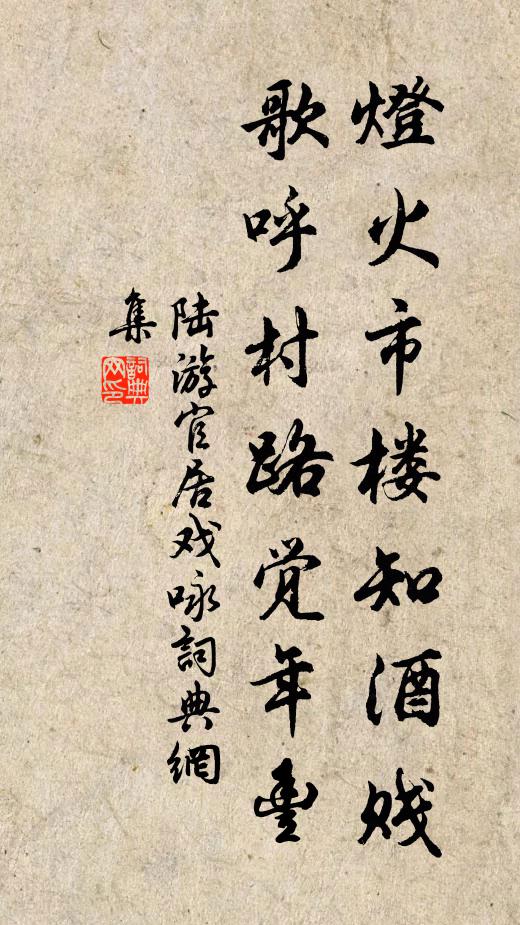 燈火市楼知酒贱
歌呼村路觉年豊
陆游官居戏咏詞典網
集
詞典
网印